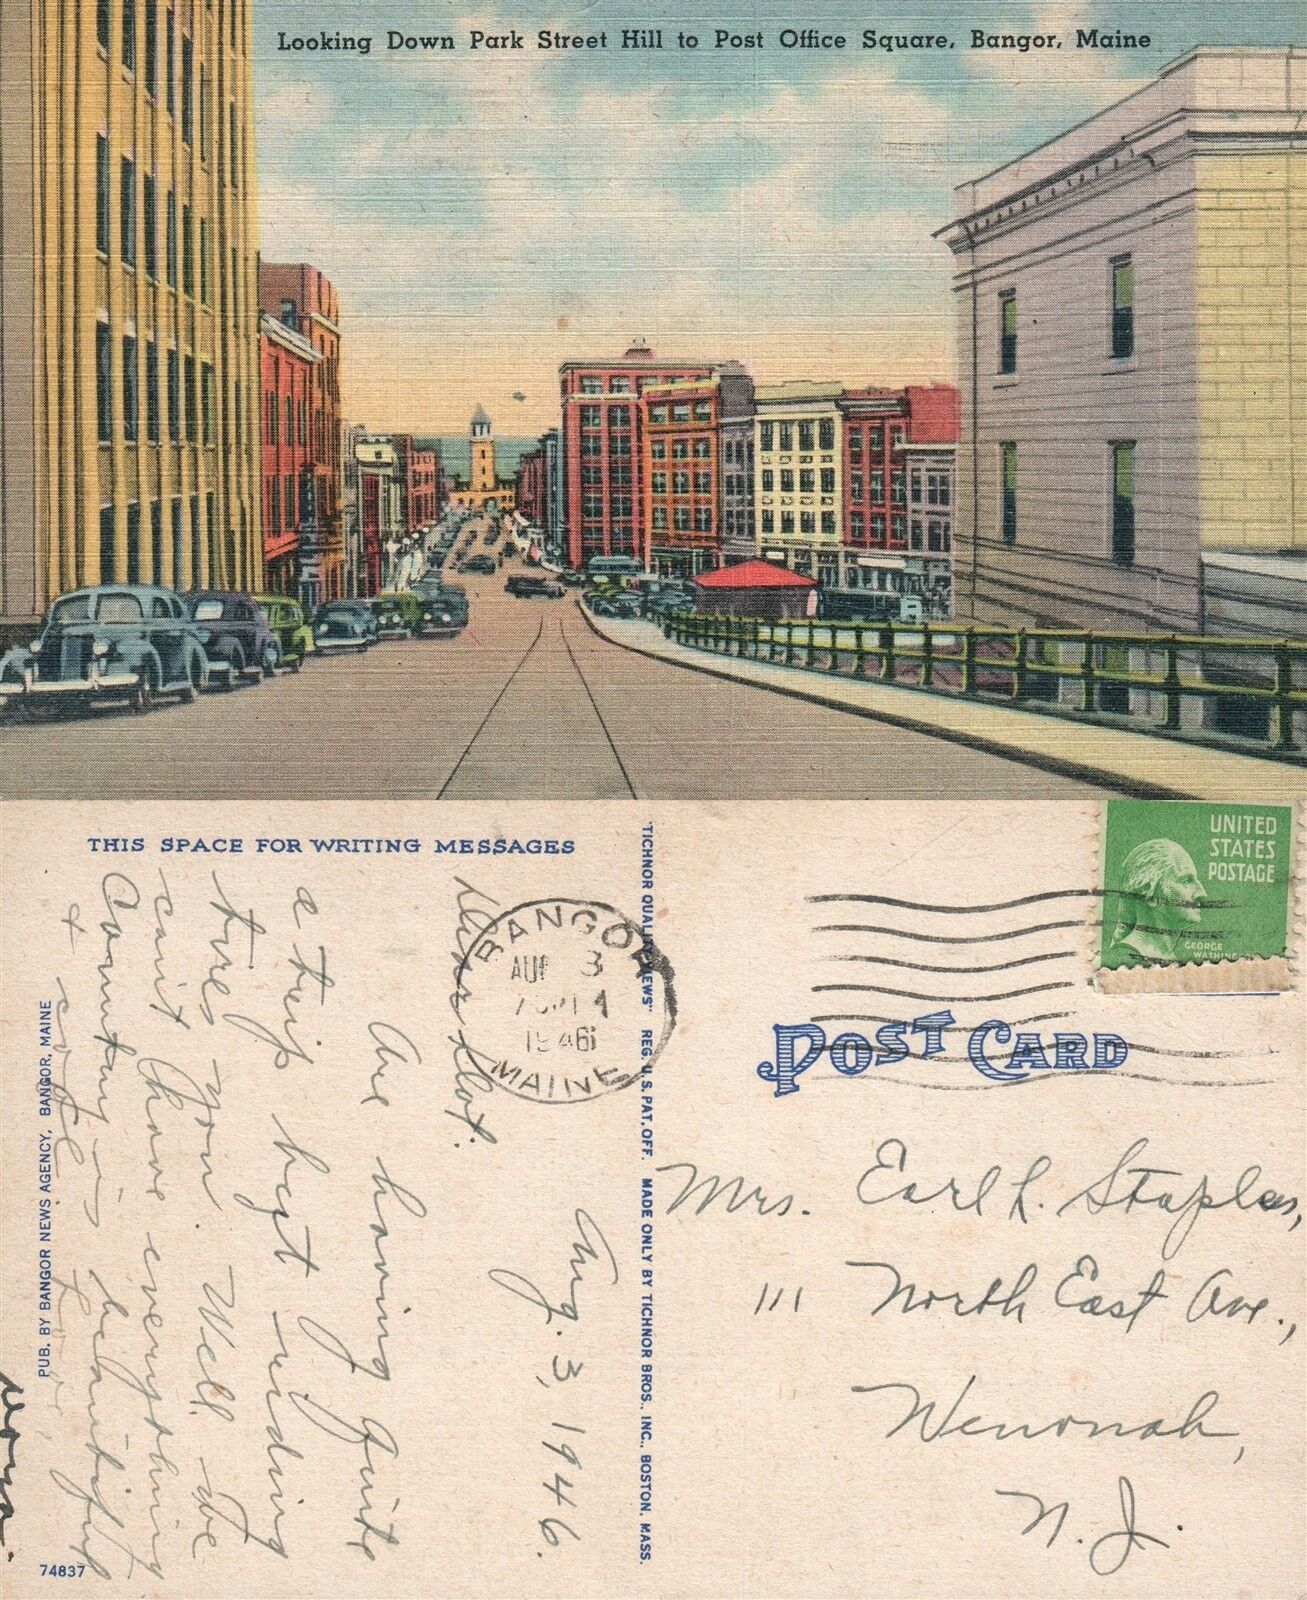 Looking Down Park Street Hill to Post Office Square, Bangor, Maine
THIS SPACE FOR WRITING MESSAGES
Aug. 3, 1946.
Dear Dot:
Are having quite
a trip but riding
tires you. Well we
can't have everything
Country is beautiful
& cool Love,
Norma.
BANGOR
AUG 3
7 PM
1946
MAINE
UNITED
STATES
POSTAGE
GEORGE
POST CARD
Mrs. Earl L. Staples,
111 North East Ave.,
Wenonah,
N. J.
"TICHNOR QUALITY VIEWS" REG. U. S. PAT. OFF. MADE ONLY BY TICHNOR BROS., INC., BOSTON, MASS.
PUB. BY BANGOR NEWS AGENCY, BANGOR, MAINE
74837